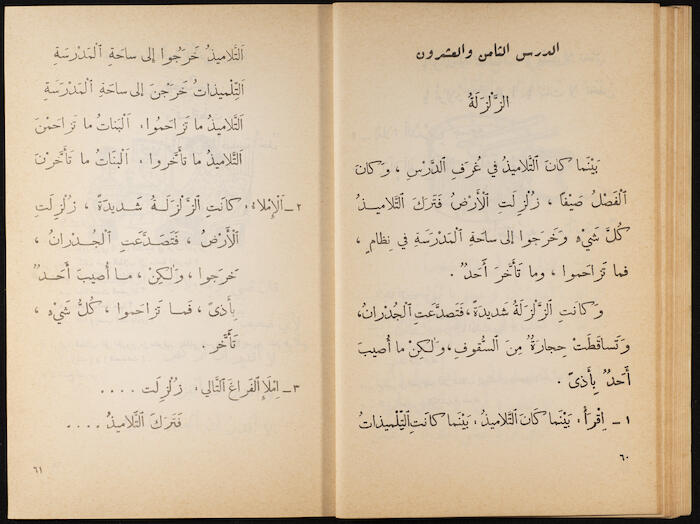 الدرس الثامن والعشرون
الزَّلْزَلَةُ
بَيْنَما كانَ التَّلاميذُ في غُرَفِ الدَّرْسِ ، وَكانَ
الْفَصْلُ صَيْفًا ، زُلْزِلَتِ الْأَرْضُ فَتَرَكَ التَّلاميذُ
كُلَّ شَيْءٍ وَخَرَجوا إلى ساحَةِ الْمَدْرَسَةِ في نِظامٍ ،
فما تَزاحَموا ، وما تَأَخَّرَ أَحَدٌ .
وَكانَتِ الزَّلْزَلَةُ شَديدَةً ، فَتَصَدَّعَتِ الْجُدْرانُ،
وَتَساقَطَتْ حِجارَةٌ مِنَ السُّقوفِ، وَلٰكِنْ ما أُصيبَ
أَحَدٌ بِأَذىً .
١ ـ اِقْرَأْ : بَيْنَما كانَ التَّلاميذُ ، بَيْنَما كانَتِ التِّلْميذاتُ
٦٠
التَّلاميذُ خَرَجُوا إلى ساحَةِ الْمَدْرَسَةِ
التِّلْميذاتُ خَرَجْنَ إلى ساحَةِ الْمَدْرَسَةِ
التَّلاميذُ ما تَزاحَمُوا، الْبَناتُ ما تَزاحَمْنَ
التَّلاميذُ ما تَأَخَّروا، الْبَناتُ ما تَأَخَّرْنَ
٢ ـ الْإمْلاءُ : كانَتِ الزَّلْزَلَةُ شَديدَةً ، زُلْزِلَتِ
الْأَرْضُ ، فَتَصَدَّعَتِ الْجُدْرانُ ،
خَرَجوا ، وَلٰكِنْ ، ما أُصيبَ أَحَدٌ
بِأَذىً ، فَما تَزاحَموا ، كُلُّ شَيْءٍ ،
تَأَخَّرَ .
٣ ـ اِمْلَإِ الْفَراغَ التَّالي : زُلْزِلَت ....
فَتَرَكَ التَّلاميذُ ....
٦١